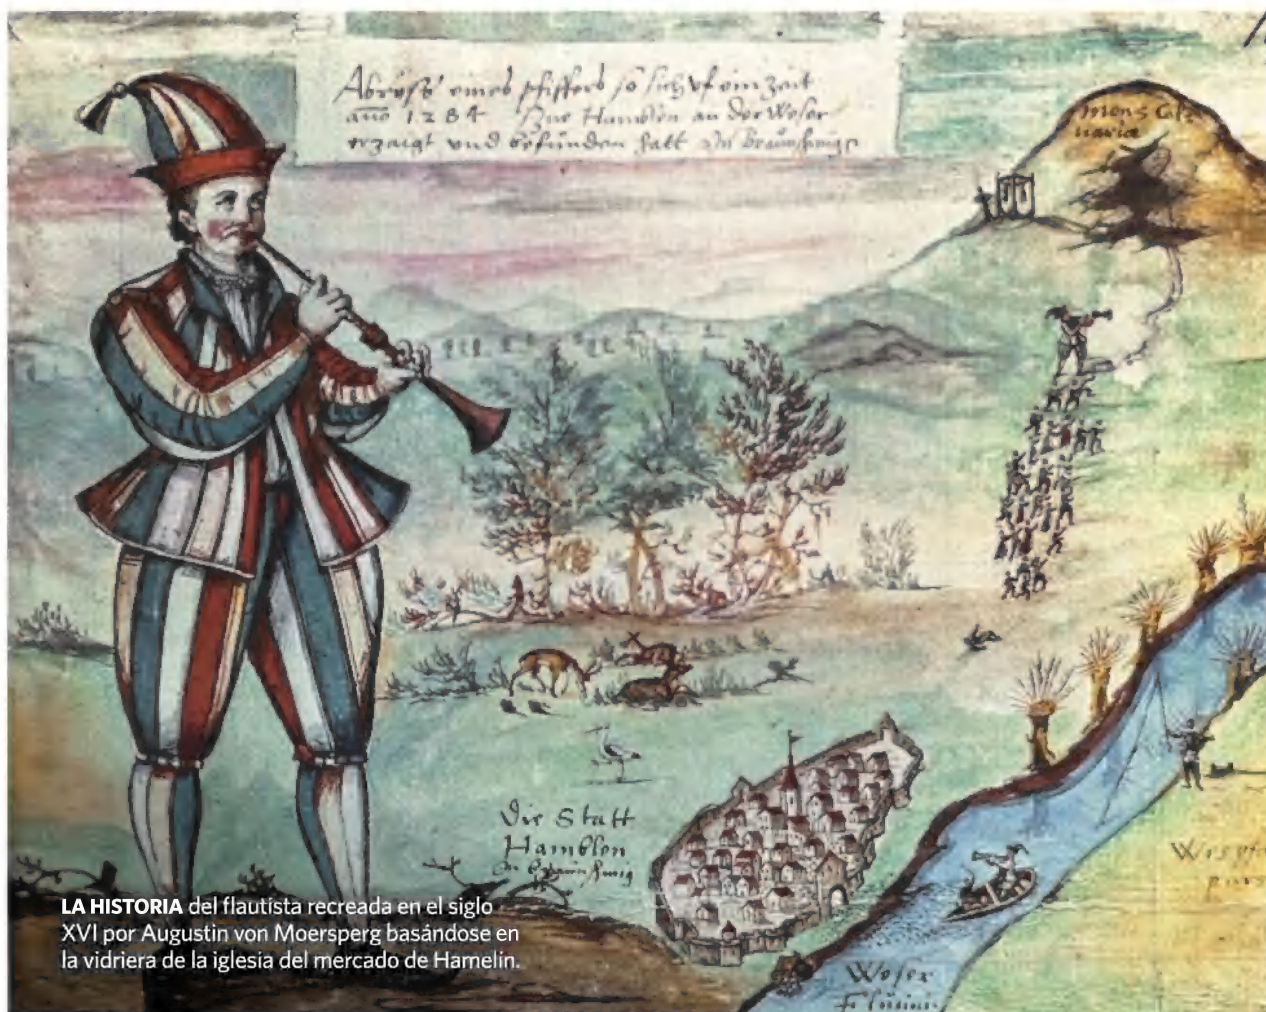 Abryß eines pfiffers so sich vf ein Zeit
año 1284 Zue Hamblen an der Weser
erzaigt und befunden hatt In Braunschwig
Mons Calz
uaria
Die Statt
Hamblen
Weser
LA HISTORIA del flautista recreada en el siglo
XVI por Augustin von Moersperg basándose en
la vidriera de la iglesia del mercado de Hamelín.